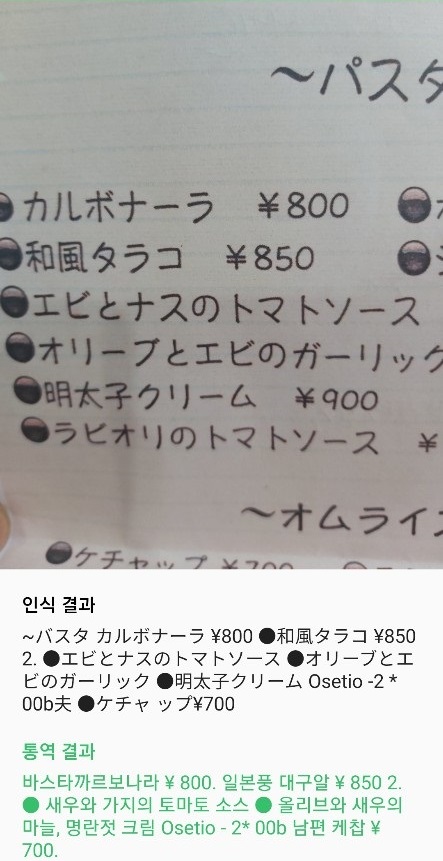 ～パスタ
カルボナーラ ￥800
和風タラコ ￥850
エビとナスのトマトソース
オリーブとエビのガーリック
明太子クリーム ￥900
ラビオリのトマトソース ￥
～オムライ
ケチャップ ￥700
인식 결과
~バスタ カルボナーラ ¥800 ●和風タラコ ¥850
2. ●エビとナスのトマトソース ●オリーブとエ
ビのガーリック ●明太子クリーム Osetio -2 *
00b夫 ●ケチャ ップ¥700
통역 결과
바스타까르보나라 ¥ 800. 일본풍 대구알 ¥ 850 2.
● 새우와 가지의 토마토 소스 ● 올리브와 새우의
마늘, 명란젓 크림 Osetio - 2* 00b 남편 케찹 ¥
700.